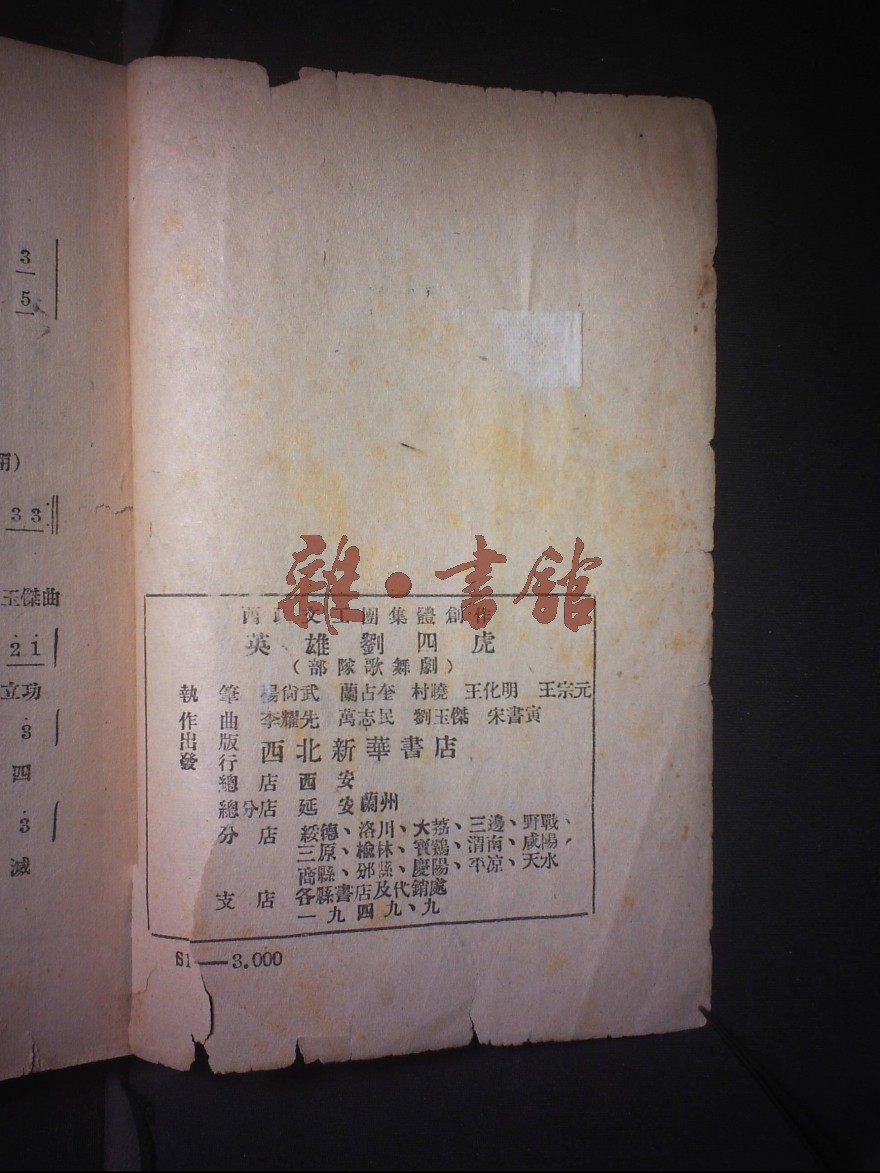 3
5
用)
3 3
玉傑曲
2 1
立功
3
四
3
滅
雜·書館
文工團集體創作
英雄劉四虎
(部隊歌舞劇)
執筆 楊尙武 蘭占奎 村曉 王化明 王宗元
作曲 李耀先 萬志民 劉玉傑 宋書寅
出版
發行 西北新華書店
總店 西安
總分店 延安蘭州
分店 綏德、洛川、大荔、三邊、野戰、
三原、楡林、寶鷄、渭南、咸陽、
商縣、邠縣、慶陽、平凉、天水
支店 各縣書店及代銷處
一九四九、九
S1——3.000